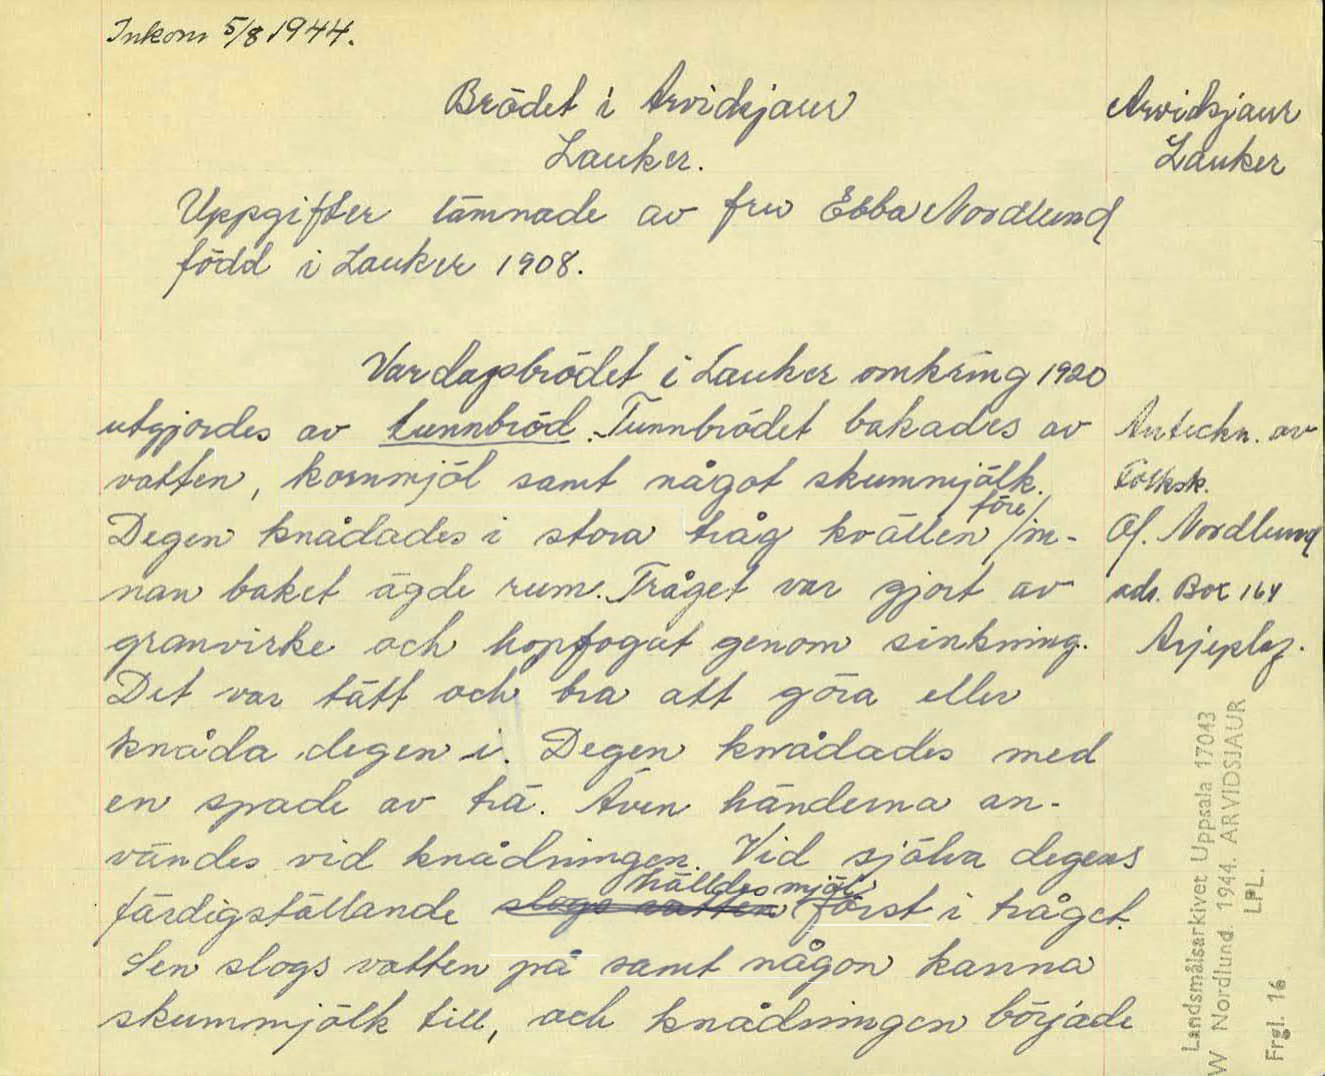 Inkom 5/8 1944.
Brödet i Arvidsjaur
Lauker.
Arvidsjaur
Lauker
Uppgifter lämnade av fru Ebba Nordlund
född i Lauker 1908.
Vardagsbrödet i Lauker omkring 1920
utgjordes av tunnbröd. Tunnbrödet bakades av
vatten, kornmjöl samt något skummjölk.
Degen knådades i stora tråg kvällen före/in-
nan baket ägde rum. Tråget var gjort av
granvirke och hopfogat genom sinkning.
Det var tätt och bra att göra eller
knåda degen i. Degen knådades med
en spade av trä. Även händerna an-
vändes vid knådningen. Vid själva degens
färdigställande slogs vatten hälldes mjöl först i tråget.
Sen slogs vatten på samt någon kanna
skummjölk till, och knådningen började
Anteckn. av
Folksk.
Of. Nordlund
adr. Box 164
Arjeplog.
Landsmålsarkivet Uppsala 17043
W Nordlund. 1944. ARVIDSJAUR
LPL.
Frgl. 16